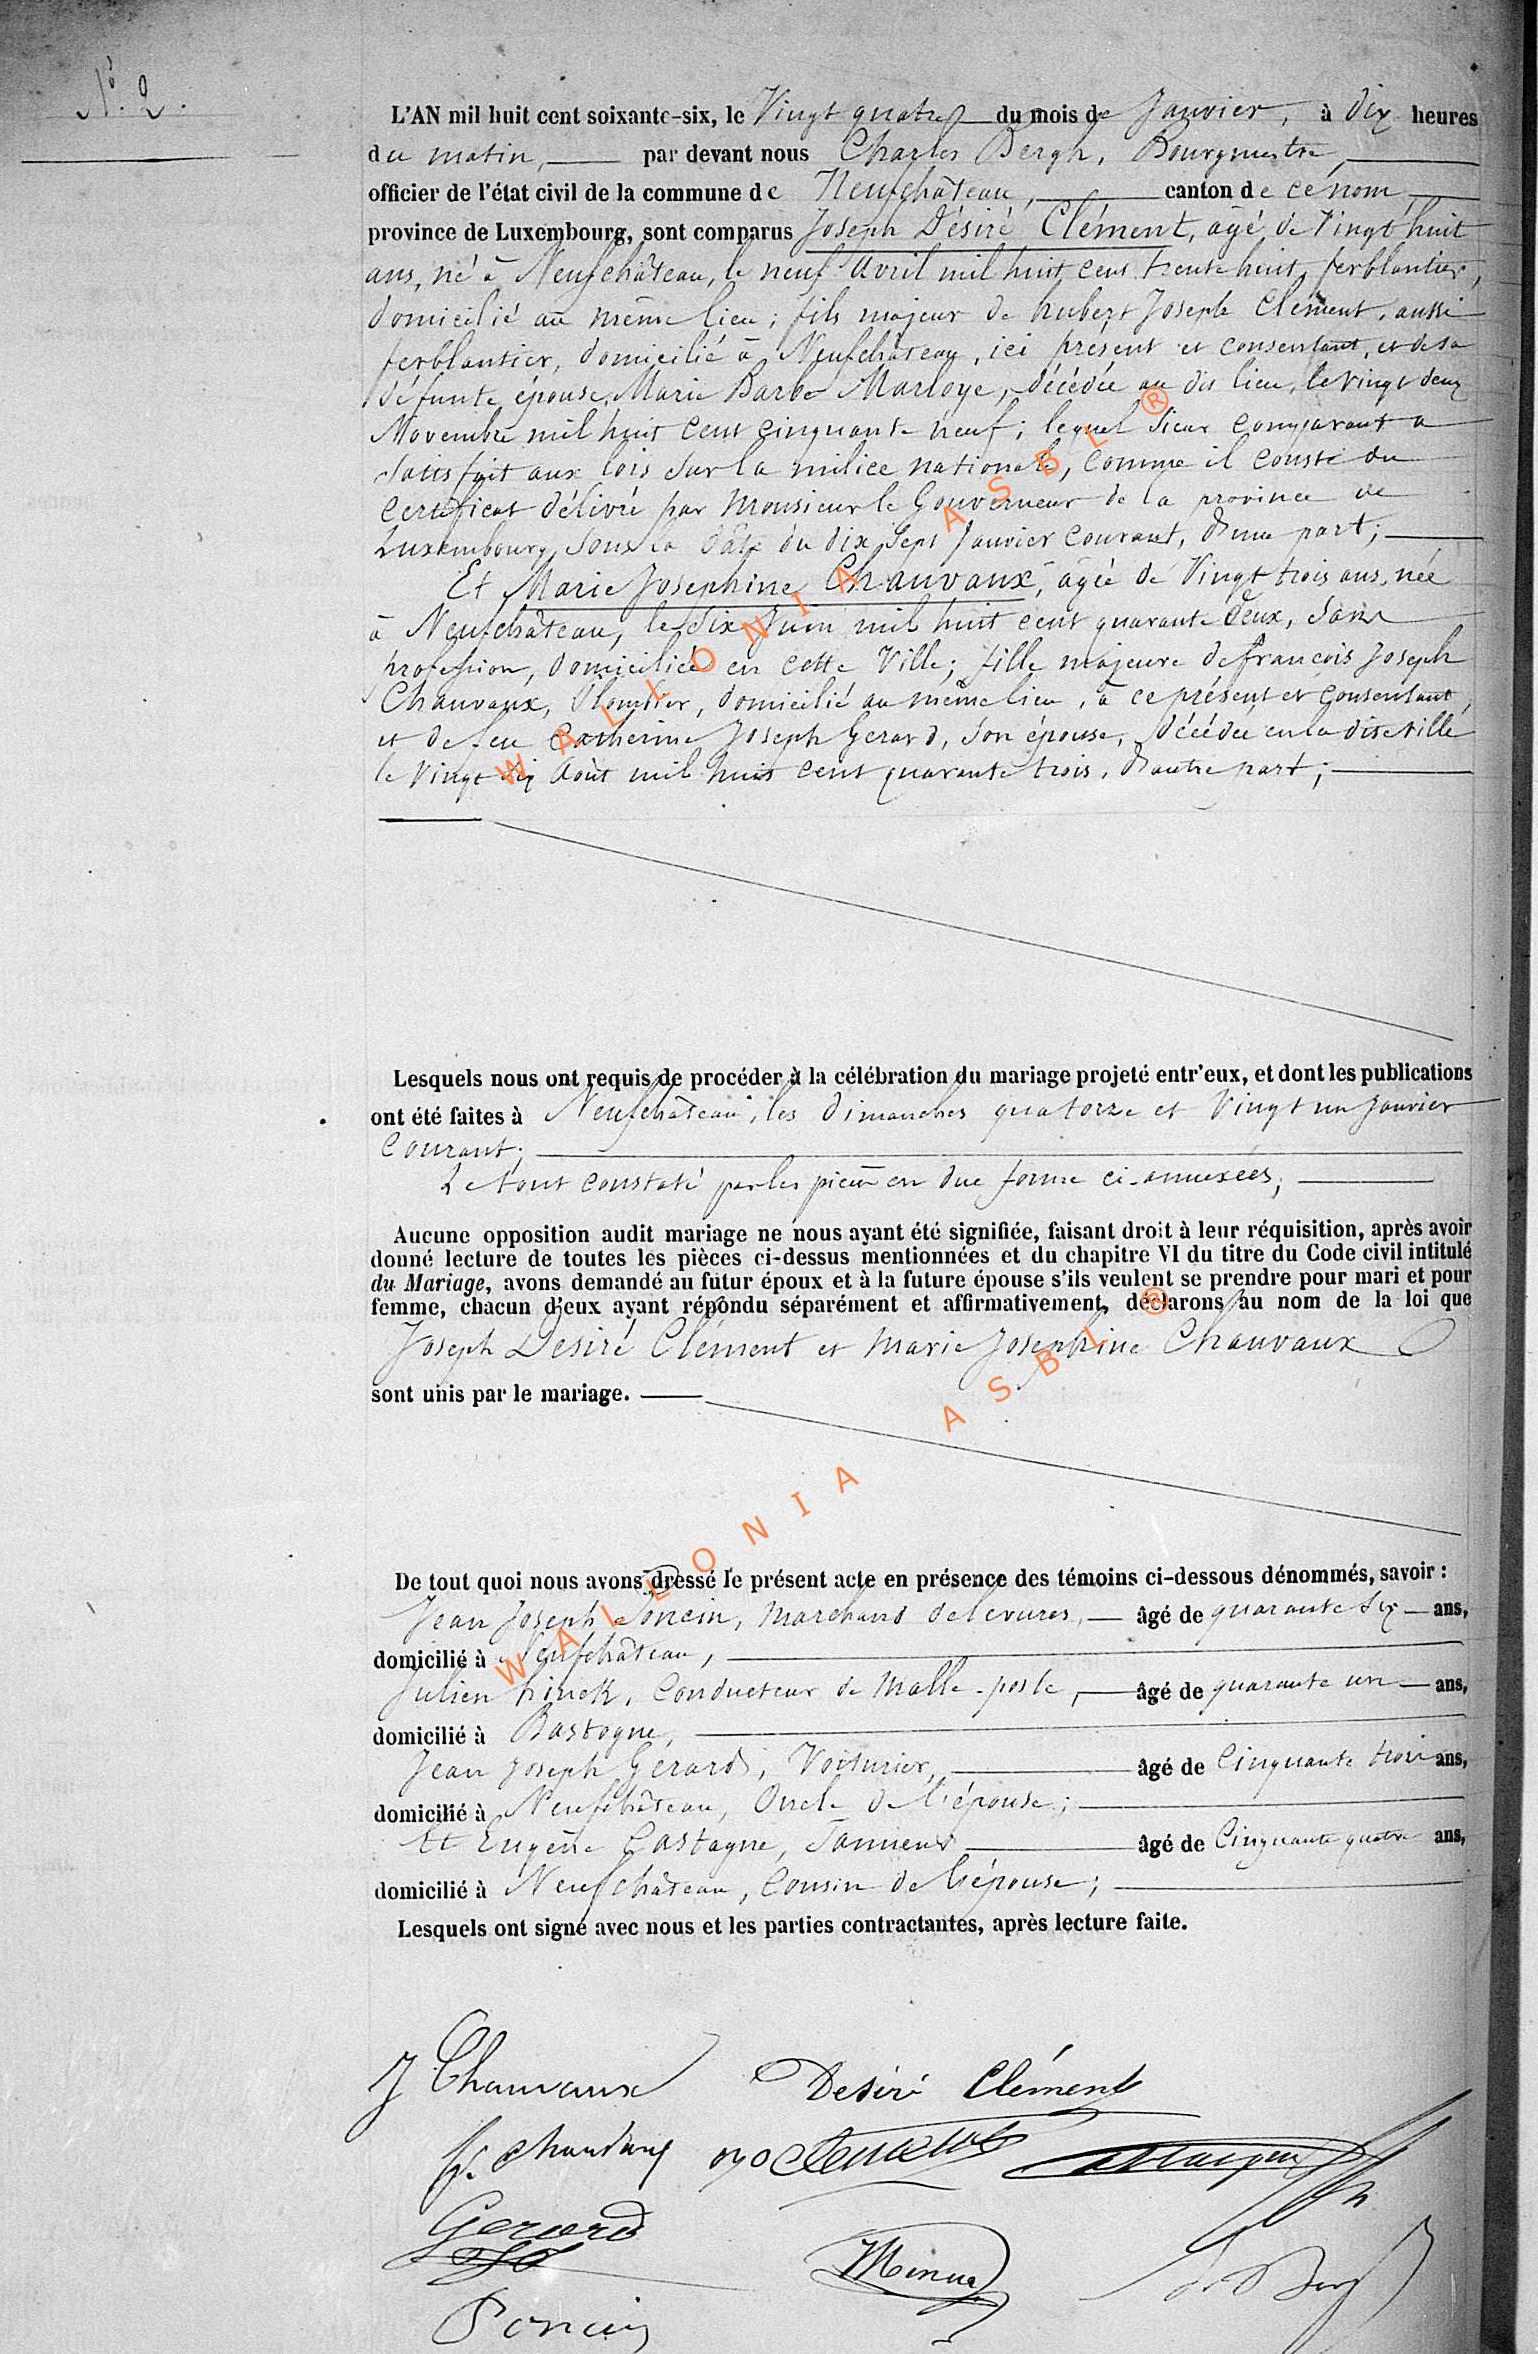 N° 2.
L'AN mil huit cent soixante-six, le Vingt quatre du mois de Janvier, à dix heures
du matin, par devant nous Charles Bergh, Bourgmestre,
officier de l'état civil de la commune de Neufchâteau, canton de ce nom,
province de Luxembourg, sont comparus Joseph Désiré Clément, âgé de Vingt huit
ans, né à Neufchâteau, le neuf Avril mil huit cent trente huit, ferblantier,
domicilié au même lieu; fils majeur de hubert Joseph Clément, aussi
ferblantier, domicilié à Neufchâteau, ici présent et consentant, et de sa
défunte épouse, Marie Barbe Marloye, décédée au dit lieu, le vingt deux
Novembre mil huit cent cinquante neuf; lequel sieur comparant a
satisfait aux lois sur la milice nationale, comme il conste du
certificat délivré par Monsieur le Gouverneur de la province de
Luxembourg, sous la date du dix sept Janvier courant, d'une part;
Et Marie Josephine Chauvaux, âgée de Vingt trois ans, née
à Neufchâteau, le dix Juin mil huit cent quarante deux, sans
profession, domiciliée en cette Ville; fille majeure de françois Joseph
Chauvaux, Plombier, domicilié au même lieu, à ce présent et consentant,
et de feu Catherine Joseph Gerard, son épouse, décédée en la dite ville
le Vingt six Août mil huit cent quarante trois, d'autre part;
Lesquels nous ont requis de procéder à la célébration du mariage projeté entr'eux, et dont les publications
ont été faites à Neufchâteau, les dimanches quatorze et Vingt un Janvier
Courant;
Le tout constaté par les pièces en due forme ci-annexées;
Aucune opposition audit mariage ne nous ayant été signifiée, faisant droit à leur réquisition, après avoir
donné lecture de toutes les pièces ci-dessus mentionnées et du chapitre VI du titre du Code civil intitulé
du Mariage, avons demandé au futur époux et à la future épouse s'ils veulent se prendre pour mari et pour
femme, chacun d'eux ayant répondu séparément et affirmativement, déclarons au nom de la loi que
Joseph Desiré Clément et Marie Josephine Chauvaux
sont unis par le mariage.
De tout quoi nous avons dressé le présent acte en présence des témoins ci-dessous dénommés, savoir :
Jean Joseph Poncin, Marchand de levures, âgé de quarante six ans,
domicilié à Neufchâteau,
Julien, Conducteur de Malle-poste, âgé de quarante un ans,
domicilié à Bastogne,
Jean Joseph Gérard, Voiturier, âgé de Cinquante trois ans,
domicilié à Neufchâteau, Oncle de l'épouse;
Et Eugène Castagne, Tanneur âgé de Cinquante quatre ans,
domicilié à Neufchâteau, Cousin de l'épouse;
Lesquels ont signé avec nous et les parties contractantes, après lecture faite.
J Chauvaux Desiré Clément
Chauvaux Clement
Gerard
Poncin
WALLONIA ASBL ®
WALLONIA ASBL ®